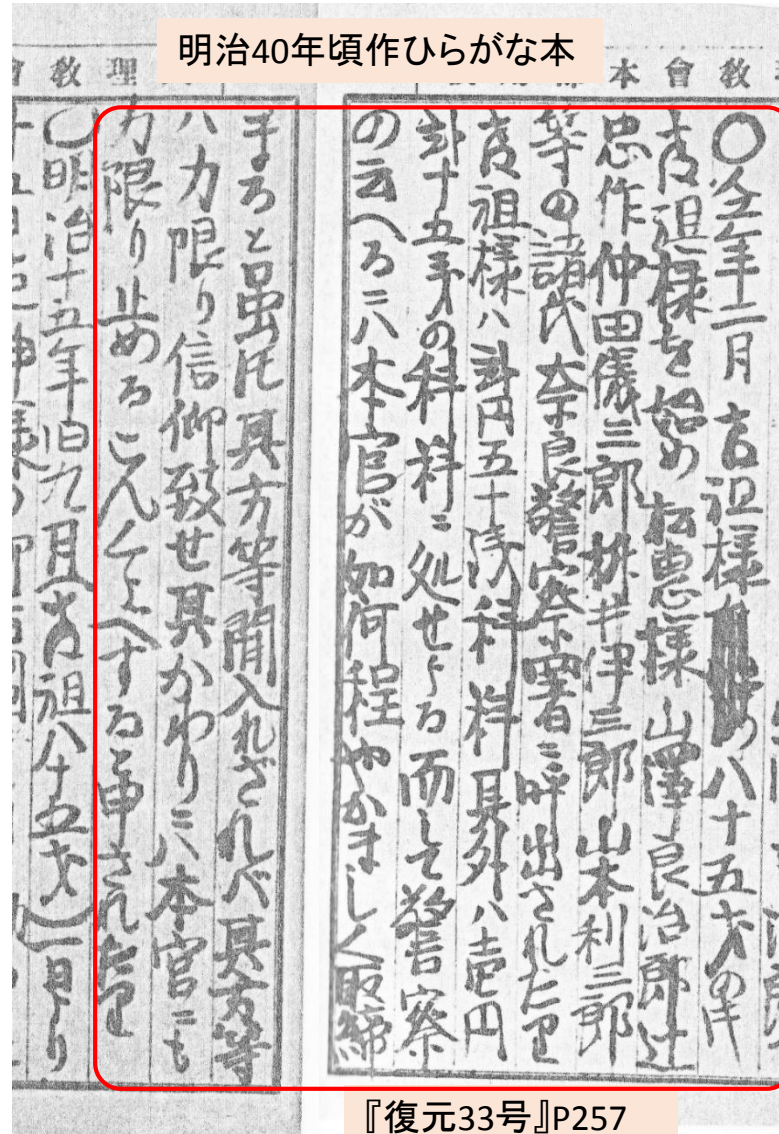 明治40年頃作ひらがな本
會 教 理
本 會 教
〇仝年二月 古祖様 の八十五才の时
教祖様を始め 松恵様 山澤良治郎 辻
忠作 仲田儀三郎 桝井伊三郎 山本利三郎
等の諸氏奈良警察署ニ呼出されたり
教祖様ハ 弐円五十銭科料 其外ハ壱円
弐十五銭の科料ニ処せらる 而して警察
の云へるニハ本官が如何程やかましく取締
まると虽氏其方等聞入れざれバ其方等
ハ力限り信仰致せ其かわりニハ本官ニも
力限り止める こんくらべする と申されたり
〇明治十五年旧九月(教祖八十五才)一日より
『復元33号』P257